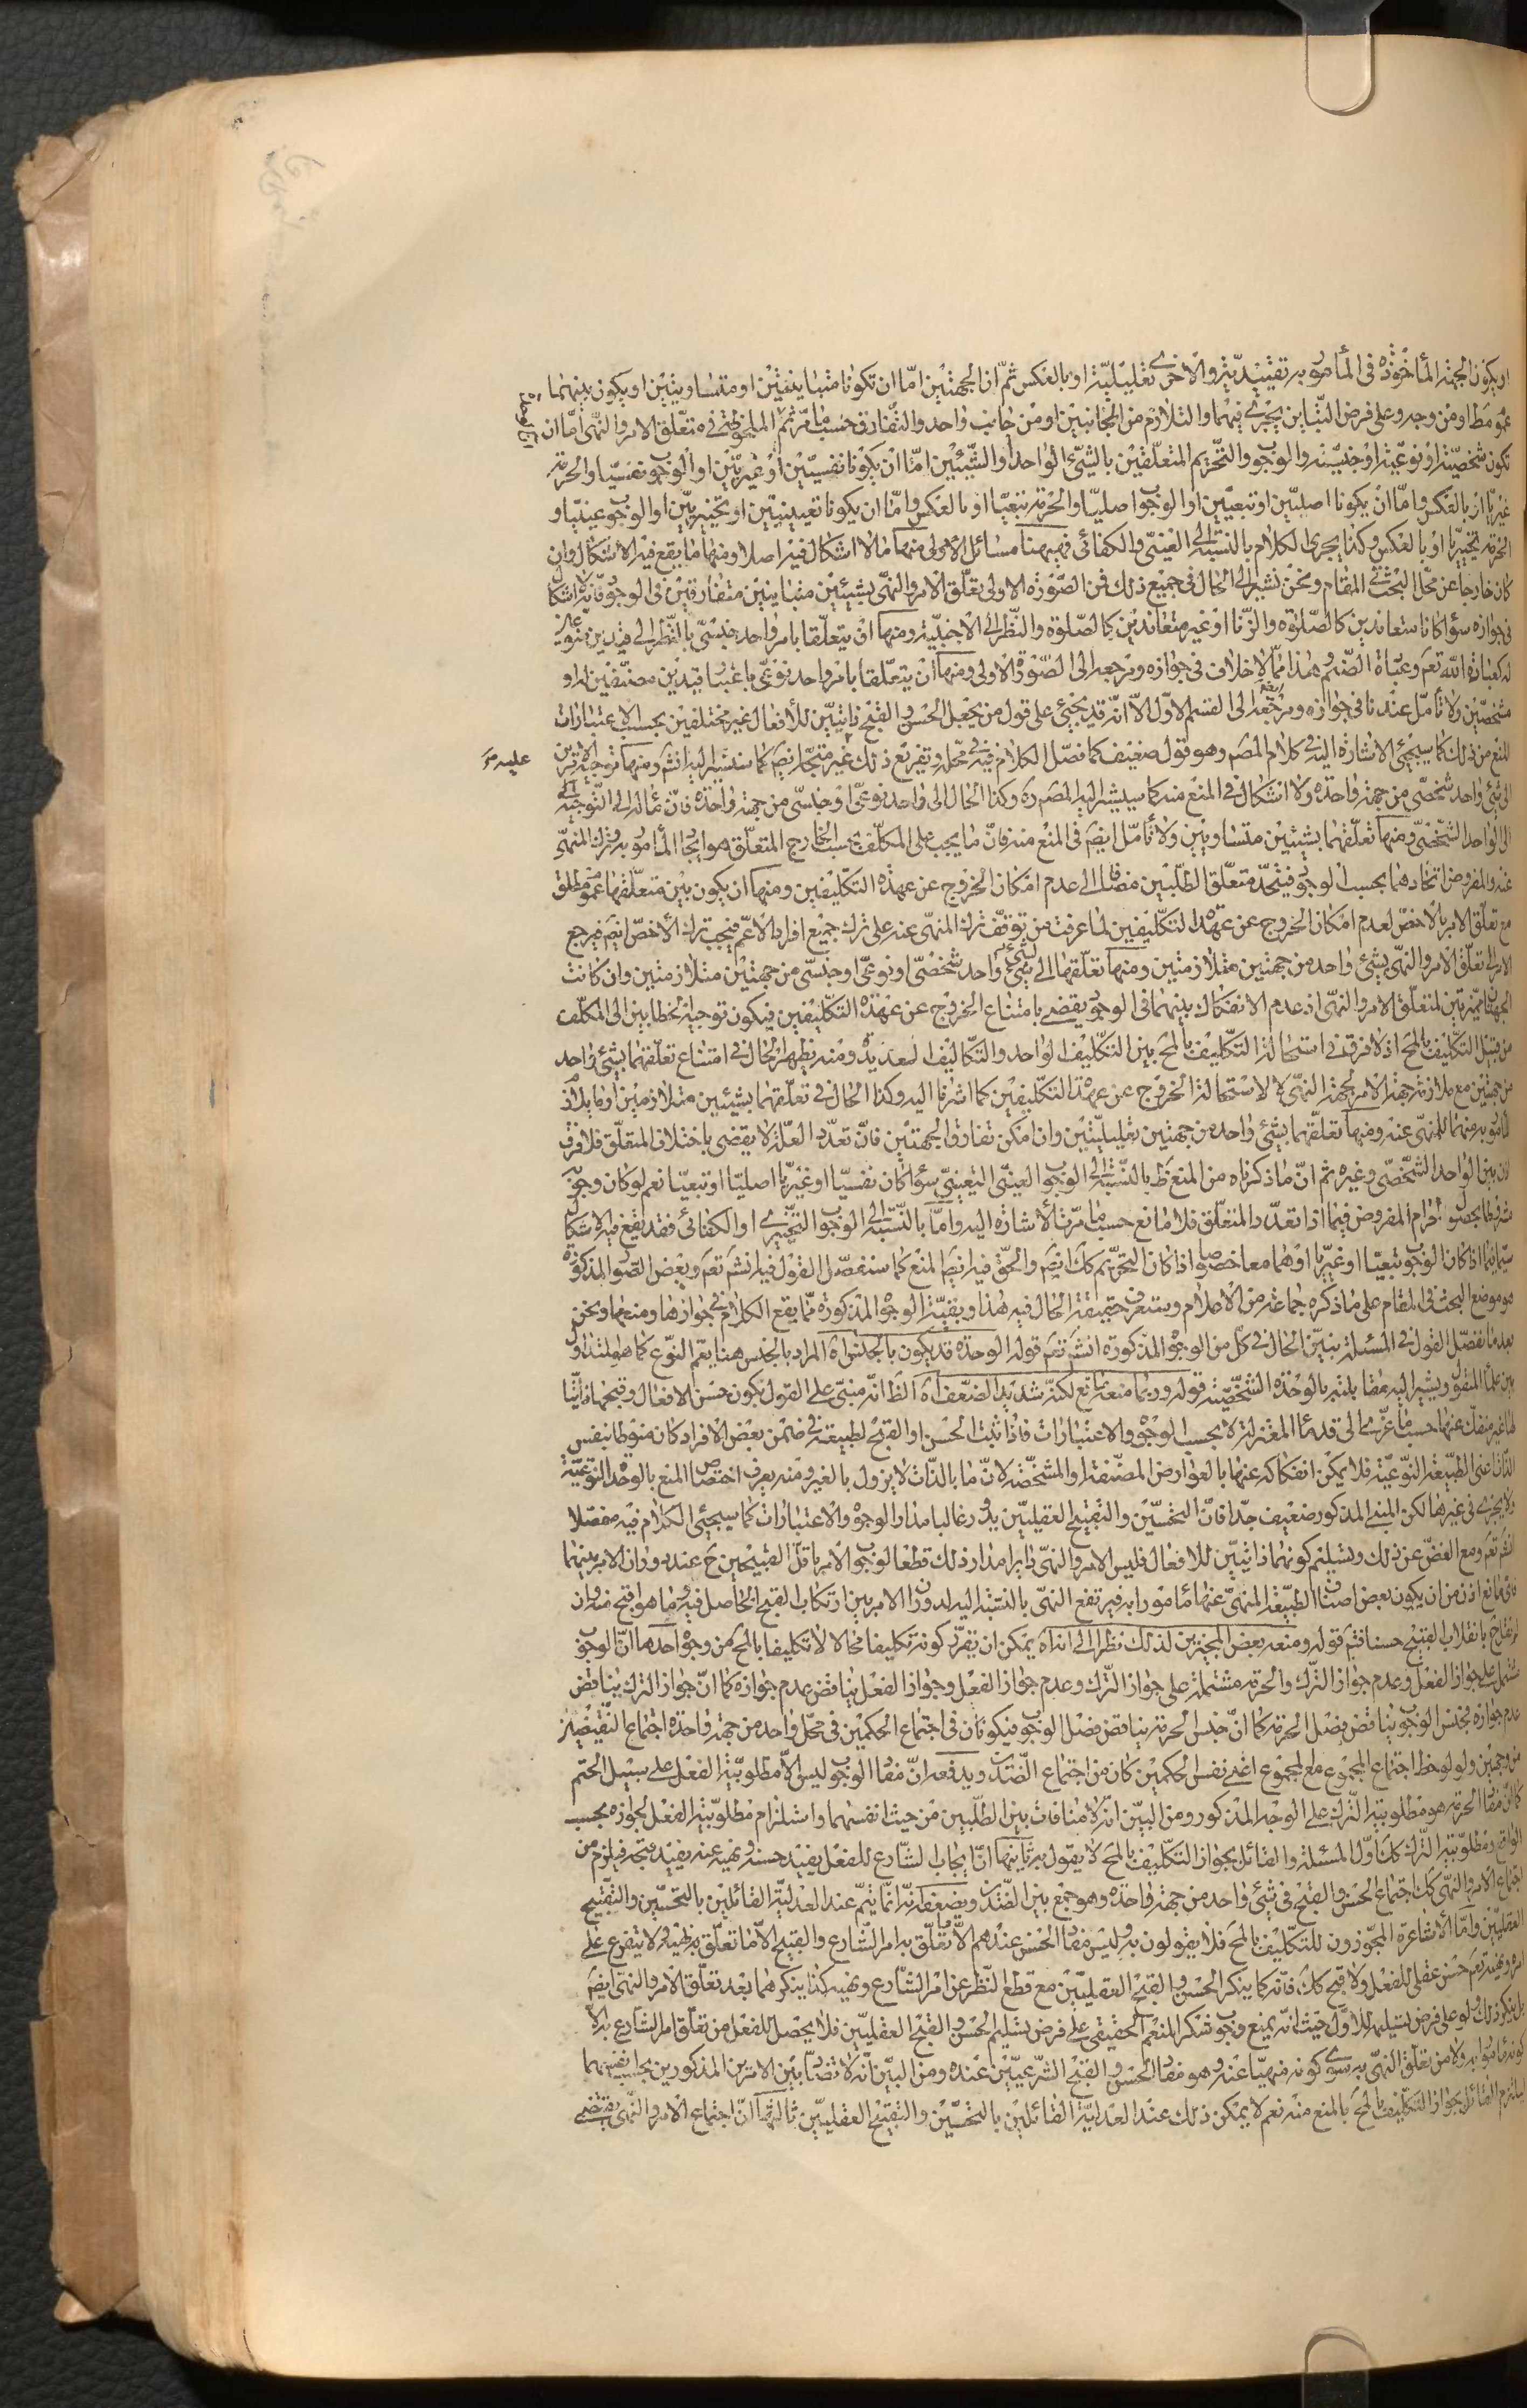 او يكون الجهة المأخوذة في المأمور به تقييدية والاخرى تعليلية او بالعكس ثم ان الجهتين اما ان تكونا متباينتين او متساويتين او يكون بينهما
عموم مطلق او من وجه وعلى فرض التباين يجرى فيهما التلازم من الجانبين او من جانب واحد والتفارق حسب ما مر ثم الملحوظة في متعلق الامر والنهى اما ان
تكون شخصية او نوعية او جنسية والوجوب والتحريم المتعلقين بالشىء الواحد او الشيئين اما ان يكونا نفسيين او غيريين او الوجوب نفسيا والحرمة
غيريا او بالعكس واما ان يكونا اصليين او تبعيين او الوجوب اصليا والحرمة تبعيا او بالعكس واما ان يكونا تعيينيين او تخييريين او الوجوب عينيا و
الحرمة تخييريا او بالعكس وكذا يجرى الكلام بالنسبة الى العينى والكفائى فههنا مسائل الاولى منها ما لا اشكال فيه اصلا ومنها ما يقع فيه الاشكال وان
كان خارجا عن محل البحث في المقام ونحن نشير الى الحال في جميع ذلك فمن الصورة الاولى تعلق الامر والنهى بشيئين متباينين متفارقين في الوجود فانه لا اشكال
في جوازه سواء كانا متعاندين كالصلوة والزنا او غير متعاندين كالصلوة والنظر الى الاجنبية ومنها ان يتعلقا بامر واحد جنسى بالنظر الى قيدين منوعين
له كعبادة الله تعم وعبادة الصنم وهذا مما لا خلاف في جوازه ومرجعه الى الصورة الاولى ومنها ان يتعلقا بامر واحد نوعى باعتبار قيدين مصنفين له او
مشخصين ولا تأمل عندنا في جوازه ومرجعه الى القسم الاول الا انه قد يجيئ على قول من يجعل الحسن والقبح ذاتيين للأفعال غير مختلفين بحسب الاعتبارات
المنع من ذلك كما سيجيئ الاشارة اليه في كلام المصم وهو قول ضعيف كما فصل الكلام فيه في محله وتفريع ذلك عليه غير متجه ايضم كما سنشير اليه انشم ومنها توجه الامرين
الى شىء واحد شخصى من جهة واحدة ولا اشكال في المنع منه كما سيشير اليه المصم ره وكذا الحال في واحد نوعى او جنسى من جهة واحدة فان مآله الى التوجه
الى الواحد الشخصى ومنها تعلقهما بشيئين متساويين ولا تأمل ايضم في المنع منه فان ما يجب على المكلف بحسب الخارج المتعلق هو ايجاد المأمور به وترك المنهى
عنه والمفروض اتحادهما بحسب الوجود فيتحد متعلق الطلبين مضافا الى عدم امكان الخروج عن عهدة التكليفين ومنها ان يكون بين متعلقهما عموم مطلق
مع تعلق الامر بالاخص لعدم امكان الخروج عن عهدة التكليفين لما عرفت من توقف ترك المنهى عنه على ترك جميع افراد الاعم فيجب ترك الأخص ايضم فيرجع
الامر الى تعلق الامر والنهى بشىء واحد من جهتين متلازمتين ومنها تعلقهما الى شىء واحد شخصى او نوعى او جنسى من جهتين متلازمتين وان كانت
الجهتان مميزتين لمتعلق الامر والنهى اذ عدم الانفكاك بينهما في الوجود يقضى بامتناع الخروج عن عهدة التكليفين فيكون توجيه الخطابين الى المكلف
من قبيل التكليف بالمحم اذ لا فرق في استحالة التكليف بالمحم بين التكليف الواحد والتكاليف العديدة ومنه يظهر الحال في امتناع تعلقهما بشىء واحد
من جهتين مع ملازمة جهة الامر لجهة النهى لاستحالة الخروج عن عهدة التكليفين كما اشرنا اليه وكذا الحال في تعلقهما بشيئين متلازمين او ما يلازم
المأمور به منهما للمنهى عنه ومنها تعلقهما بشىء واحد من جهتين تعليليتين وان امكن تفارق الجهتين فان تعدد العلة لا يقضى باختلاف المتعلق فلا فرق
اذن بين الواحد الشخصى وغيره ثم ان ما ذكرناه من المنع ظ بالنسبة الى الوجوب العينى التعيينى سواء كان نفسيا او غيريا اصليا او تبعيا نعم لو كان وجوبه
مشروطا بحصول الحرام المفروض فيما اذا تعدد المتعلق فلا مانع حسب ما مرت الأشارة اليه واما بالنسبة الى الوجوب التخييرى او الكفائى فقد يقع فيه الاشكال
سيما فيما اذا كان الوجوب تبعيا او غيريا او هما معا خصوصا اذا كان التحريم كك ايضم والحق فيه ايضم المنع كما سنفصل القول فيه انشم تعم وبعض الصور المذكورة
هو موضع البحث في المقام على ما ذكره جماعة من الأعلام وستعرف حقيقة الحال فيه هذا وبقية الوجوه المذكورة مما يقع الكلام في جوازها ومنعها ونحن
بعد ما نفصل القول في المسئلة نبين الحال في كل من الوجوه المذكورة انشم تعم قوله الوحدة قد يكون بالجنس اه المراد بالجنس هنا يعم النوع كما هو المتداول
بين علماء المنقول ويشير اليه مقابلته بالوحدة الشخصية قوله وربما منعه مانع لكنه شديد الضعف اه الظ انه مبنى على القول بكون حسن الافعال وقبحها ذاتيا
لها غير منفك عنها حسب ما عزى الى قدماء المعتزلة لا بحسب الوجوه والاعتبارات فاذا ثبت الحسن او القبح لطبيعة في ضمن بعض الافراد كان منوطا بنفس
الذات اعنى الطبيعة النوعية فلا يمكن انفكاكه عنها بالعوارض المصنفة او المشخصة لان ما بالذات لا يزول بالغير ومنه يعرف اختصاص المنع بالوحدة النوعية
ولا يجرى في غيرها لكن المبنى المذكور ضعيف جدا فان التحسين والتقبيح العقليين يدور غالبا مدار الوجوه والاعتبارات كما سيجيئ الكلام فيه مفصلا
انشم تعم ومع الغض عن ذلك وتسليم كونهما ذاتيين للافعال فليس الامر والنهى دايرا مدار ذلك قطعا لوجوب الأمر باقل القبيحين ح عند دوران الامر بينهما
فاى مانع اذن من ان يكون بعض اصناف الطبيعة المنهى عنها مأمورا به فيرتفع النهى بالنسبة اليه لدوران الامر بين ارتكاب القبيح الحاصل فيه وما هو اقبح منه وان
لم يقل ح بانقلاب القبيح حسنا فتم قوله ومنعه بعض المجيزين لذلك نظرا الى انه اه يمكن ان تقرر كونه تكليفا محالا لا تكليفا بالمحم من وجوه احدها ان الوجوب
مشتمل على جواز الفعل وعدم جواز الترك والحرمة مشتملة على جواز الترك وعدم جواز الفعل وجواز الفعل يناقض عدم جوازه كما ان جواز الترك يناقض
عدم جوازه فجنس الوجوب يناقض فصل الحرمة كما ان جنس الحرمة يناقض فصل الوجوب فيكونان في اجتماع الحكمين في محل واحد من جهة واحدة اجتماع النقيضين
من وجهين ولو لوحظ اجتماع المجموع مع المجموع اعنى نفس الحكمين كان من اجتماع الضدين ويدفعه ان مفاد الوجوب ليس الا مطلوبية الفعل على سبيل الحتم
كما ان مفاد الحرمة هو مطلوبية الترك على الوجه المذكور ومن البين انه لا منافات بين الطلبين من حيث انفسهما واستلزام مطلوبية الفعل لجوازه بحسب
الواقع ومطلوبية الترك كك اول المسئلة والقائل بجواز التكليف بالمحم لا يقول به ثانيها ان ايجاب الشارع للفعل يفيد حسنه ونهيه عنه يفيد قبحه فيلزم من
اجتماع الامر والنهى كك اجتماع الحسن والقبح في شىء واحد من جهة واحدة وهو جمع بين الضدين ويضعفه انه انما يتم عند العدلية القائلين بالتحسين والتقبيح
العقليين واما الأشاعرة المجوزون للتكليف بالمحم فلا يقولون به وليس مفاد الحسن عندهم الا ما تعلق به امر الشارع والقبيح الا ما تعلق به نهيه ولا يتفرع على
امره ونهيه تعم حسن عقلى للفعل ولا قبح كك فانه كما ينكر الحسن والقبح العقليين مع قطع النظر عن امر الشارع ونهيه كذا ينكرهما بعد تعلق الامر والنهى ايضم
بل ينكر ذلك ولو على فرض تسليمه للاول حيث انه يمنع وجوب شكر المنعم الحقيقى على فرض تسليم الحسن والقبح العقليين فلا يحصل للفعل من تعلق امر الشارع به الا
كونه مأمورا به ولا من تعلق النهى به سوى كونه منهيا عنه وهو مفاد الحسن والقبح الشرعيين عنده ومن البين انه لا تضاد بين الامرين المذكورين بحسب انفسهما
ليلتزم القائل بجواز التكليف بالمحم بالمنع منه نعم لا يمكن ذلك عند العدلية القائلين بالتحسين والتقبيح العقليين ثالثها ان اجتماع الامر والنهى يقتضى